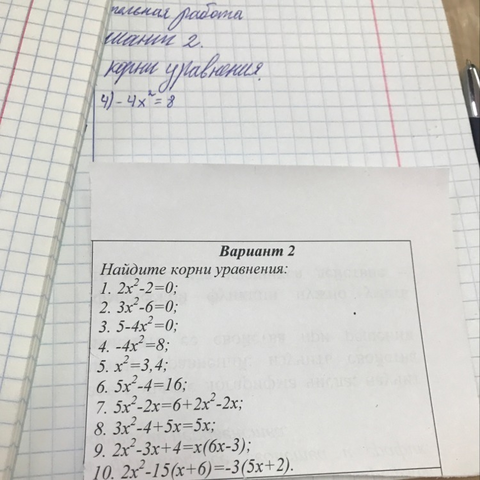 работа
2.
корни уравнения.
4) -4x²=8
Вариант 2
Найдите корни уравнения:
1. 2x²-2=0;
2. 3x²-6=0;
3. 5-4x²=0;
4. -4x²=8;
5. x²=3,4;
6. 5x²-4=16;
7. 5x²-2x=6+2x²-2x;
8. 3x²-4+5x=5x;
9. 2x²-3x+4=x(6x-3);
10. 2x²-15(x+6)=-3(5x+2).